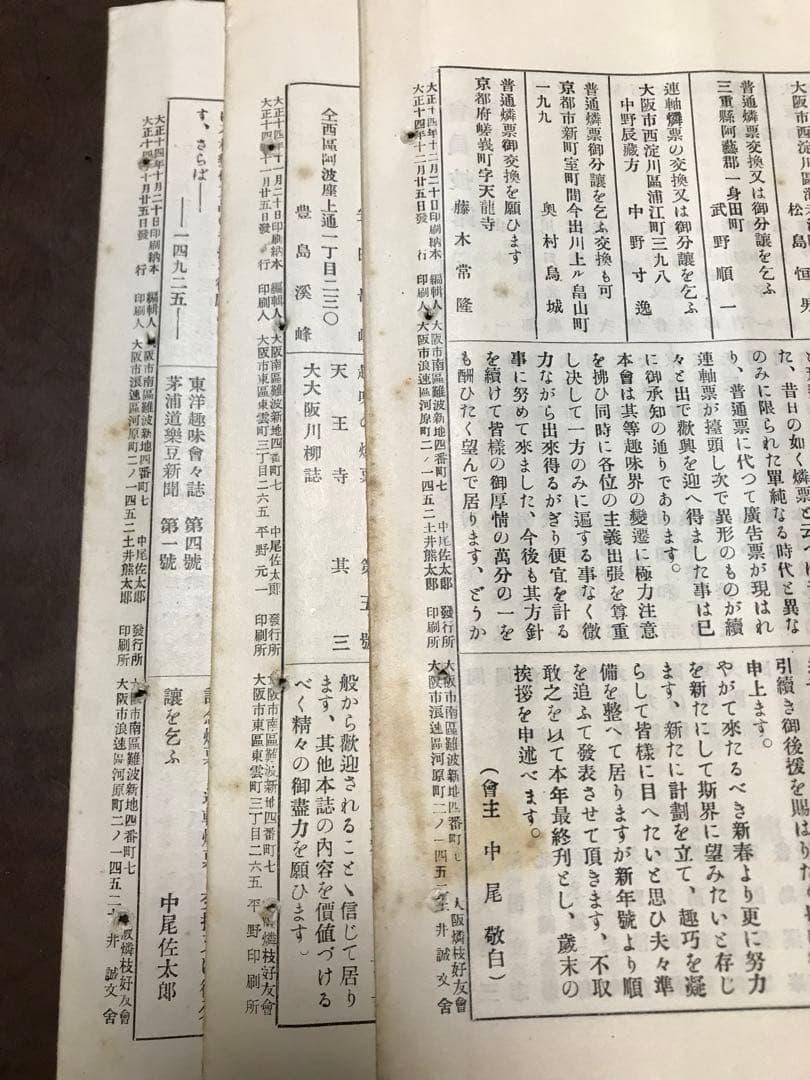 大阪市西淀川區海
松島恒男
普通燐票交換又は御分讓を乞ふ
三重縣阿藝郡一身田町
武野順一
連軸燐票の交換又は御分讓を乞ふ
大阪市西淀川區浦江町三九八
中野辰藏方 中野寸逸
普通燐票御分讓を乞ふ交換も可
京都市新町室町間今出川上ル畠山町
一九九 奥村鳥城
普通燐票御交換を願ひます
京都府嵯峩町字天龍寺
藤木常隆
た、昔日の如く燐票と云へば
のみに限られた單純なる時代と異な
り、普通票に代つて廣告票が現はれ
連軸票が擡頭し次で異形のものが續
々と出で歡興を迎へ得ました事は已
に御承知の通りであります。
本會は其等趣味界の變遷に極力注意
を拂ひ同時に各位の主義出張を尊重
し決して一方のみに逼する事なく微
力ながら出來得るがぎり便宜を計る
事に努めて來ました、今後も其方針
を續けて皆樣の御厚情の萬分の一を
も酬ひたく望んで居ります、どうか
引續き御後援を賜はりたく
申上ます。
やがて來たるべき新春より更に努力
を新たにして斯界に望みたいと存じ
ます、新たに計劃を立て、趣巧を凝
らして皆樣に目へたいと思ひ夫々準
備を整へて居りますが新年號より順
を追ふて發表させて頂きます、不取
敢之を以て本年最終刊とし、歳末の
挨拶を申述べます。
(會主 中尾敬白)
大正十四年十二月二十日印刷納本
大正十四年十二月廿五日發行
編輯人 大阪市南區難波新地四番町七 中尾佐太郎
印刷人 大阪市浪速區河原町二ノ一四五二 土井熊太郎
發行所 大阪市南區難波新地四番町七 大阪燐枝好友會
印刷所 大阪市浪速區河原町二ノ一四五二 土井誠文舍
仝西區阿波座上通一丁目二三〇
豊島溪峰
第五號
天王寺 其三
大大阪川柳誌
般から歡迎されることゝ信じて居り
ます、其他本誌の內容を價値づける
べく精々の御盡力を願ひます)
大正十四年十一月二十日印刷納本
大正十四年十一月廿五日發行
編輯人 大阪市南區難波新地四番町七 中尾佐太郎
印刷人 大阪市東區東雲町三丁目二六五 平野元一
發行所 大阪市南區難波新地四番町七 燐枝好友會
印刷所 大阪市東區東雲町三丁目二六五 平野印刷所
す、さらば──
──一四、九、二五──
東洋趣味會々誌 第四號
茅浦道樂豆新聞 第一號
讓を乞ふ
中尾佐太郎
大正十四年十月二十日印刷納本
大正十四年十月廿五日發行
編輯人 大阪市南區難波新地四番町七 中尾佐太郎
印刷人 大阪市浪速區河原町二ノ一四五二 土井熊太郎
發行所 大阪市南區難波新地四番町七 大阪燐枝好友會
印刷所 大阪市浪速區河原町二ノ一四五二 土井誠文舍